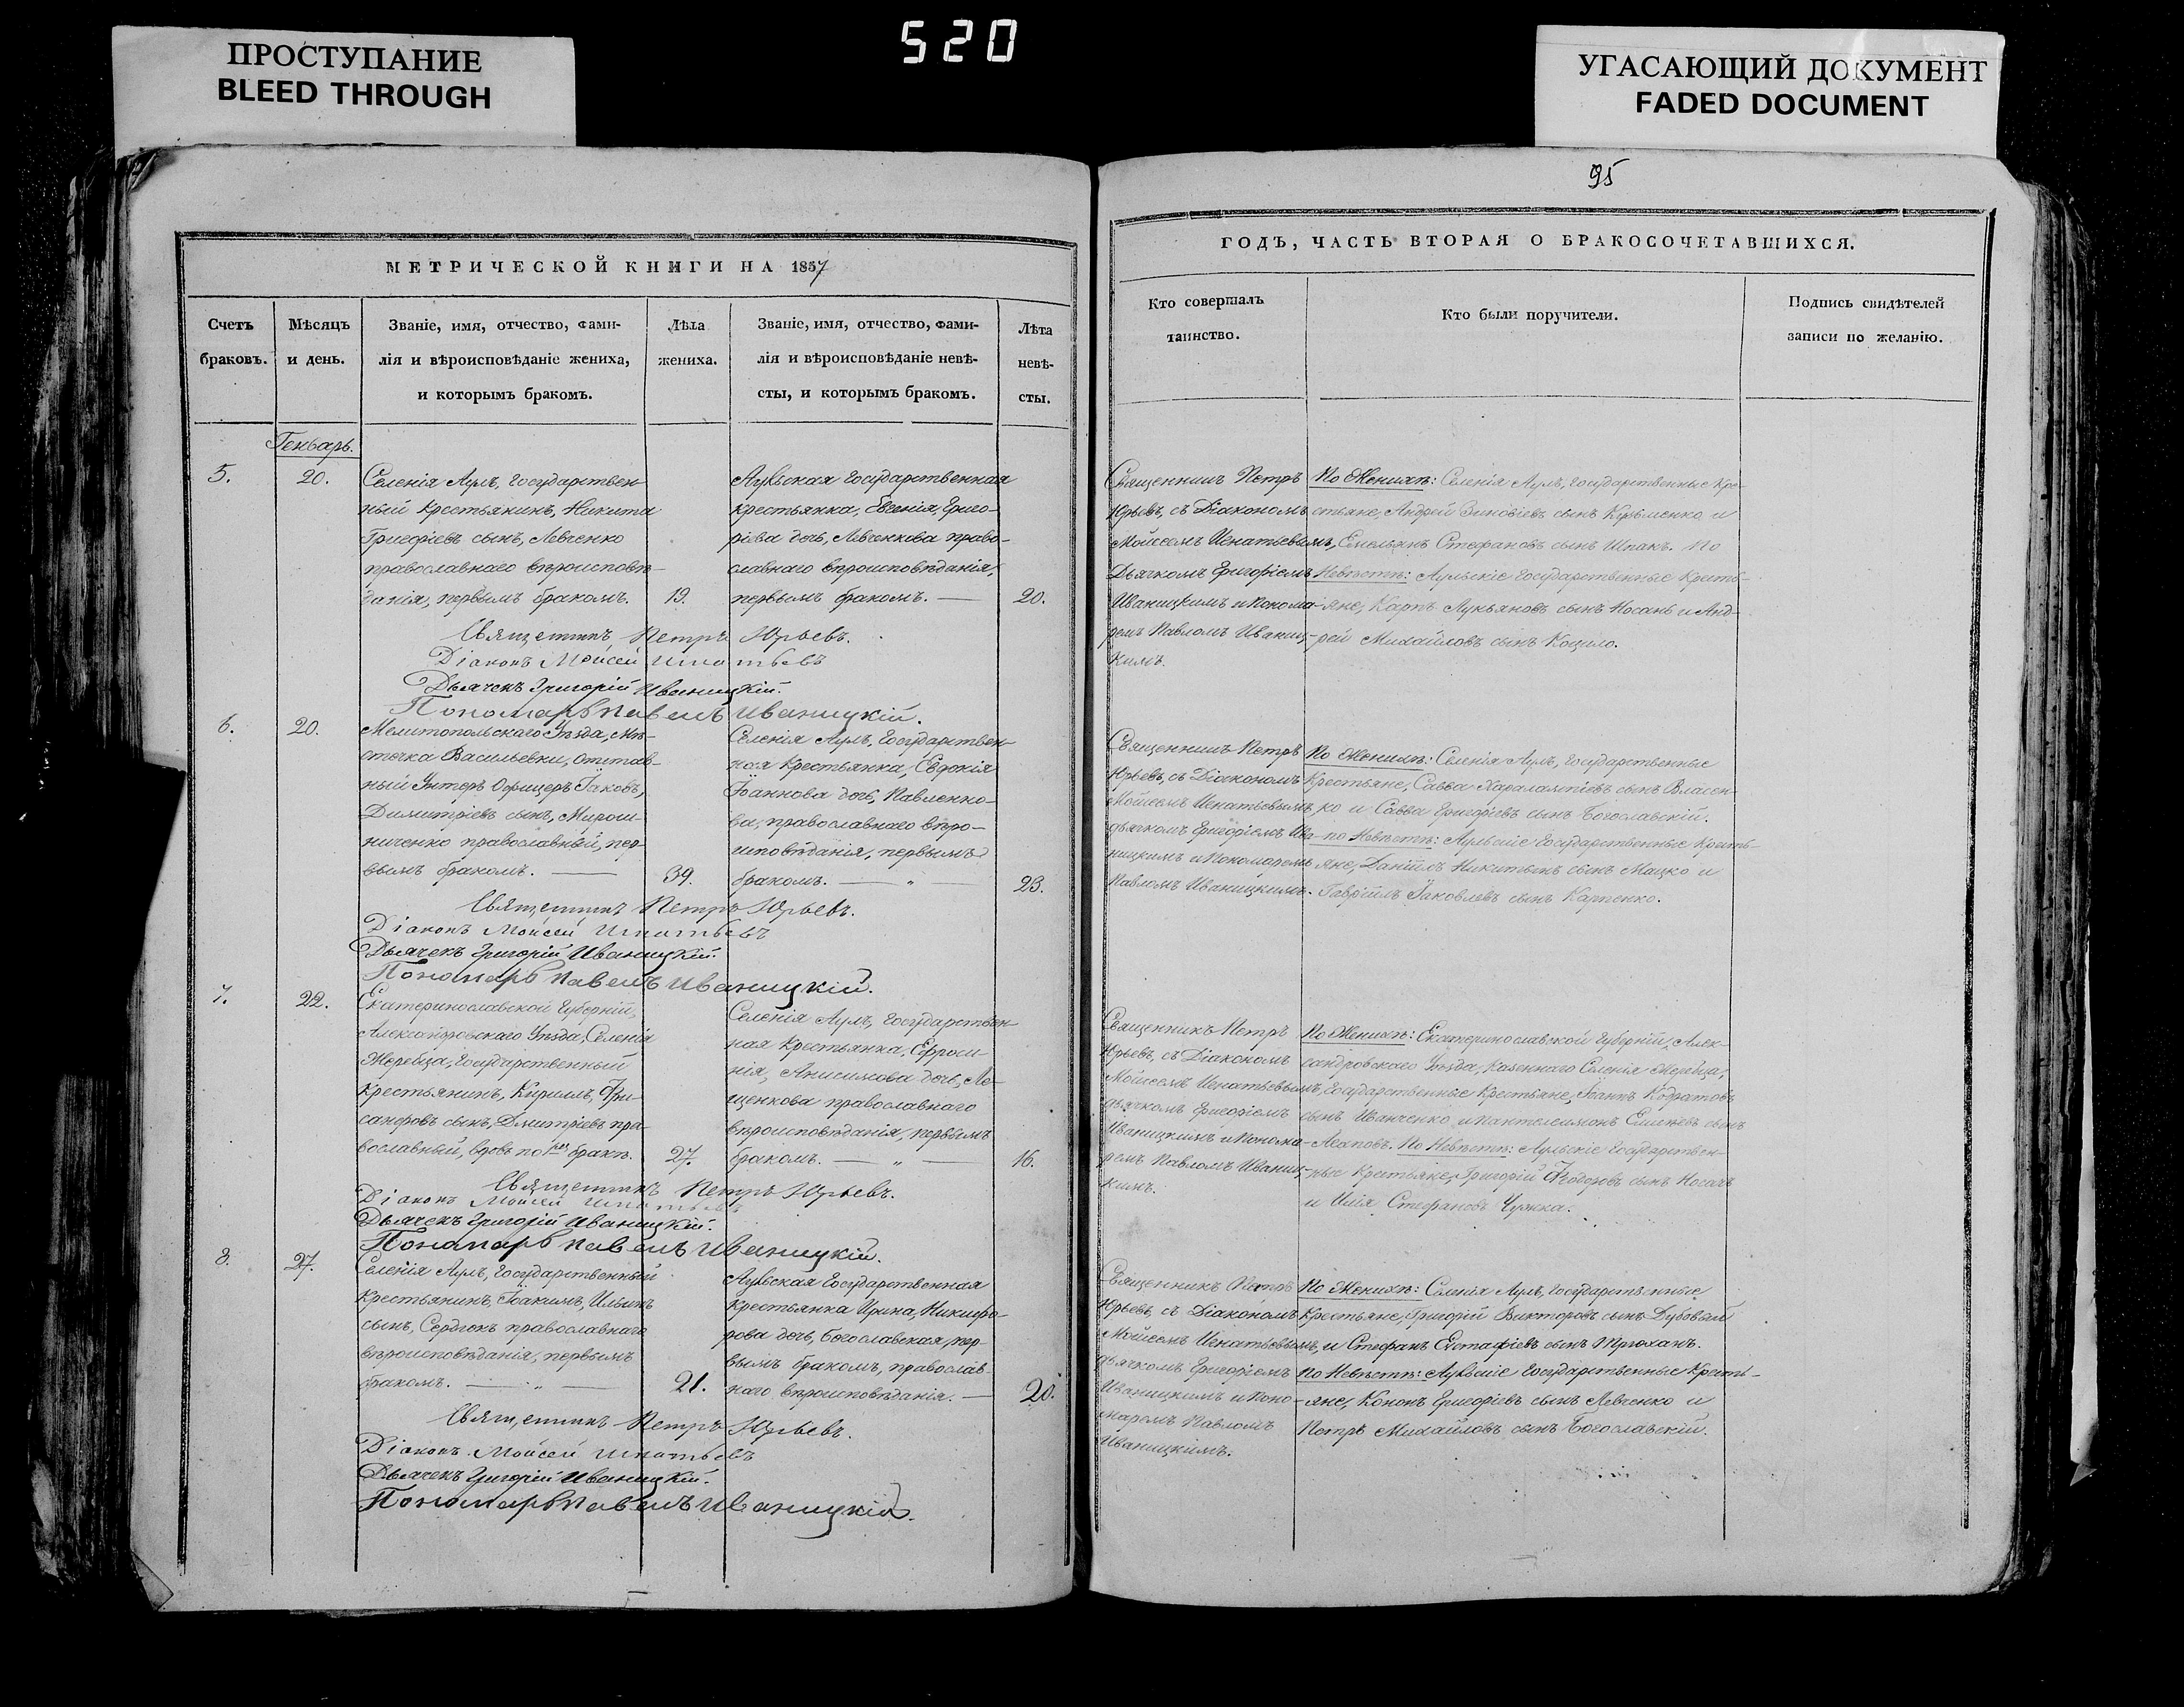 520
ПРОСТУПАНИЕ
BLEED THROUGH
УГАСАЮЩИЙ ДОКУМЕНТ
FADED DOCUMENT
МЕТРИЧЕСКОЙ КНИГИ НА 1857
Счетъ
браковъ.
Мѣсяцъ
и день.
Званіе, имя, отчество, фами-
лія и вѣроисповѣданіе жениха,
и которымъ бракомъ.
Лѣта
жениха.
Званіе, имя, отчество, фами-
лія и вѣроисповѣданіе невѣ-
сты, и которымъ бракомъ.
Лѣта
невѣ-
сты.
Генварь.
5.
20.
Селенія Аулъ, государствен-
ный крестьянинъ, Никита
Григоріевъ сынъ, Левченко
православнаго вѣроисповѣ-
данія, первымъ бракомъ.
19.
Аульская государственная
крестьянка, Евгенія Григо-
ріева дочь, Левченкова право-
славнаго вѣроисповѣданія,
первымъ бракомъ. —
20.
Священникъ Петръ Юрьевъ.
Діаконъ Моисей Игнатьевъ
Дьячекъ Григорій Иваницкій.
Пономарь Павелъ Иваницкій.
6.
20.
Мелитопольскаго Уѣзда, Мѣ-
стечка Васильевки, отстав-
ный Унтеръ Офицеръ Іаковъ,
Димитріевъ сынъ, Мирош-
ниченко православный, пер-
вымъ бракомъ. —
39.
Селенія Аулъ, государствен-
ная крестьянка, Евдокія
Іоаннова дочь, Павленко-
ва, православнаго вѣро-
исповѣданія, первымъ
бракомъ. — „ —
23.
Священникъ Петръ Юрьевъ.
Діаконъ Моисей Игнатьевъ
Дьячекъ Григорій Иваницкій.
Пономарь Павелъ Иваницкій.
7.
22.
Екатеринославской Губерніи,
Александровскаго Уѣзда, Селенія
Жеребца, государственный
крестьянинъ, Кирилъ, Хри-
санфовъ сынъ, Дмитріевъ пра-
вославный, вдовъ по 1мъ бракѣ.
27.
Селенія Аулъ, государствен-
ная крестьянка, Ефроси-
нія, Анисимова дочь, Ле-
щенкова православнаго
вѣроисповѣданія, первымъ
бракомъ. — „ —
16.
Священникъ Петръ Юрьевъ.
Діаконъ Моисей Игнатьевъ
Дьячекъ Григорій Иваницкій.
Пономарь Павелъ Иваницкій.
8.
27.
Селенія Аулъ, государственный
крестьянинъ, Іоакимъ, Ильинъ
сынъ, Сердюкъ православнаго
вѣроисповѣданія, первымъ
бракомъ. — „ —
21.
Аульская государственная
крестьянка Ирина, Никифо-
рова дочь, Богославская, пер-
вымъ бракомъ, православ-
наго вѣроисповѣданія. —
20.
Священникъ Петръ Юрьевъ.
Діаконъ Моисей Игнатьевъ
Дьячекъ Григорій Иваницкій.
Пономарь Павелъ Иваницкій.
95
ГОДЪ, ЧАСТЬ ВТОРАЯ О БРАКОСОЧЕТАВШИХСЯ.
Кто совершалъ
таинство.
Кто были поручители.
Подпись свидѣтелей
записи по желанію.
Священникъ Петръ
Юрьевъ, съ Діакономъ
Мойсеемъ Игнатьевымъ,
Дьячкомъ Григоріемъ
Иваницкимъ и Понома-
ремъ Павломъ Иваниц-
кимъ.
По Женихѣ: Селенія Аулъ, государственные кре-
стьяне, Андрей Зиновіевъ сынъ Кузьменко и
Емельянъ Стефановъ сынъ Шпакъ. По
Невѣстѣ: Аульскіе государственные кресть-
яне, Карпъ Лукьяновъ сынъ Носань и Анд-
рей Михайловъ сынъ Коцило.
Священникъ Петръ
Юрьевъ, съ Діакономъ
Мойсеемъ Игнатьевымъ,
дьячкомъ Григоріемъ Ива-
ницкимъ и Пономаремъ
Павломъ Иваницкимъ.
По Женихѣ: Селенія Аулъ, государственные
крестьяне, Савва Харалампіевъ сынъ Власен-
ко и Савва Григоріевъ сынъ Богославскій.
по Невѣстѣ: Аульскіе государственные кресть-
яне, Даніилъ Никитинъ сынъ Мацко и
Гавріилъ Іаковлевъ сынъ Карпенко.
Священникъ Петръ
Юрьевъ, съ Діакономъ
Мойсеемъ Игнатьевымъ,
дьячкомъ Григоріемъ
Иваницкимъ и Понома-
ремъ Павломъ Иваниц-
кимъ.
По Женихѣ: Екатеринославской Губерніи, Алек-
сандровскаго Уѣзда, казеннаго Селенія Жеребца,
государственные крестьяне, Іоаннъ Кодратовъ
сынъ Иванченко и Пантелеимонъ сынъ
Агаповъ. По Невѣстѣ: Аульскіе государствен-
ные крестьяне, Григорій Ѳеодоровъ сынъ Носачъ
и Илія Стефановъ Чужка.
Священникъ Петръ
Юрьевъ, съ Діакономъ
Мойсеемъ Игнатьевымъ,
дьячкомъ Григоріемъ
Иваницкимъ и Поно-
маремъ Павломъ
Иваницкимъ.
По Женихѣ: Селенія Аулъ, государственные
крестьяне, Григорій Викторовъ сынъ Дубовый
и Стефанъ Евстафіевъ сынъ Трюханъ.
по Невѣстѣ: Аульскіе государственные кресть-
яне, Кононъ Григоріевъ сынъ Левченко и
Петръ Михайловъ сынъ Богославскій.